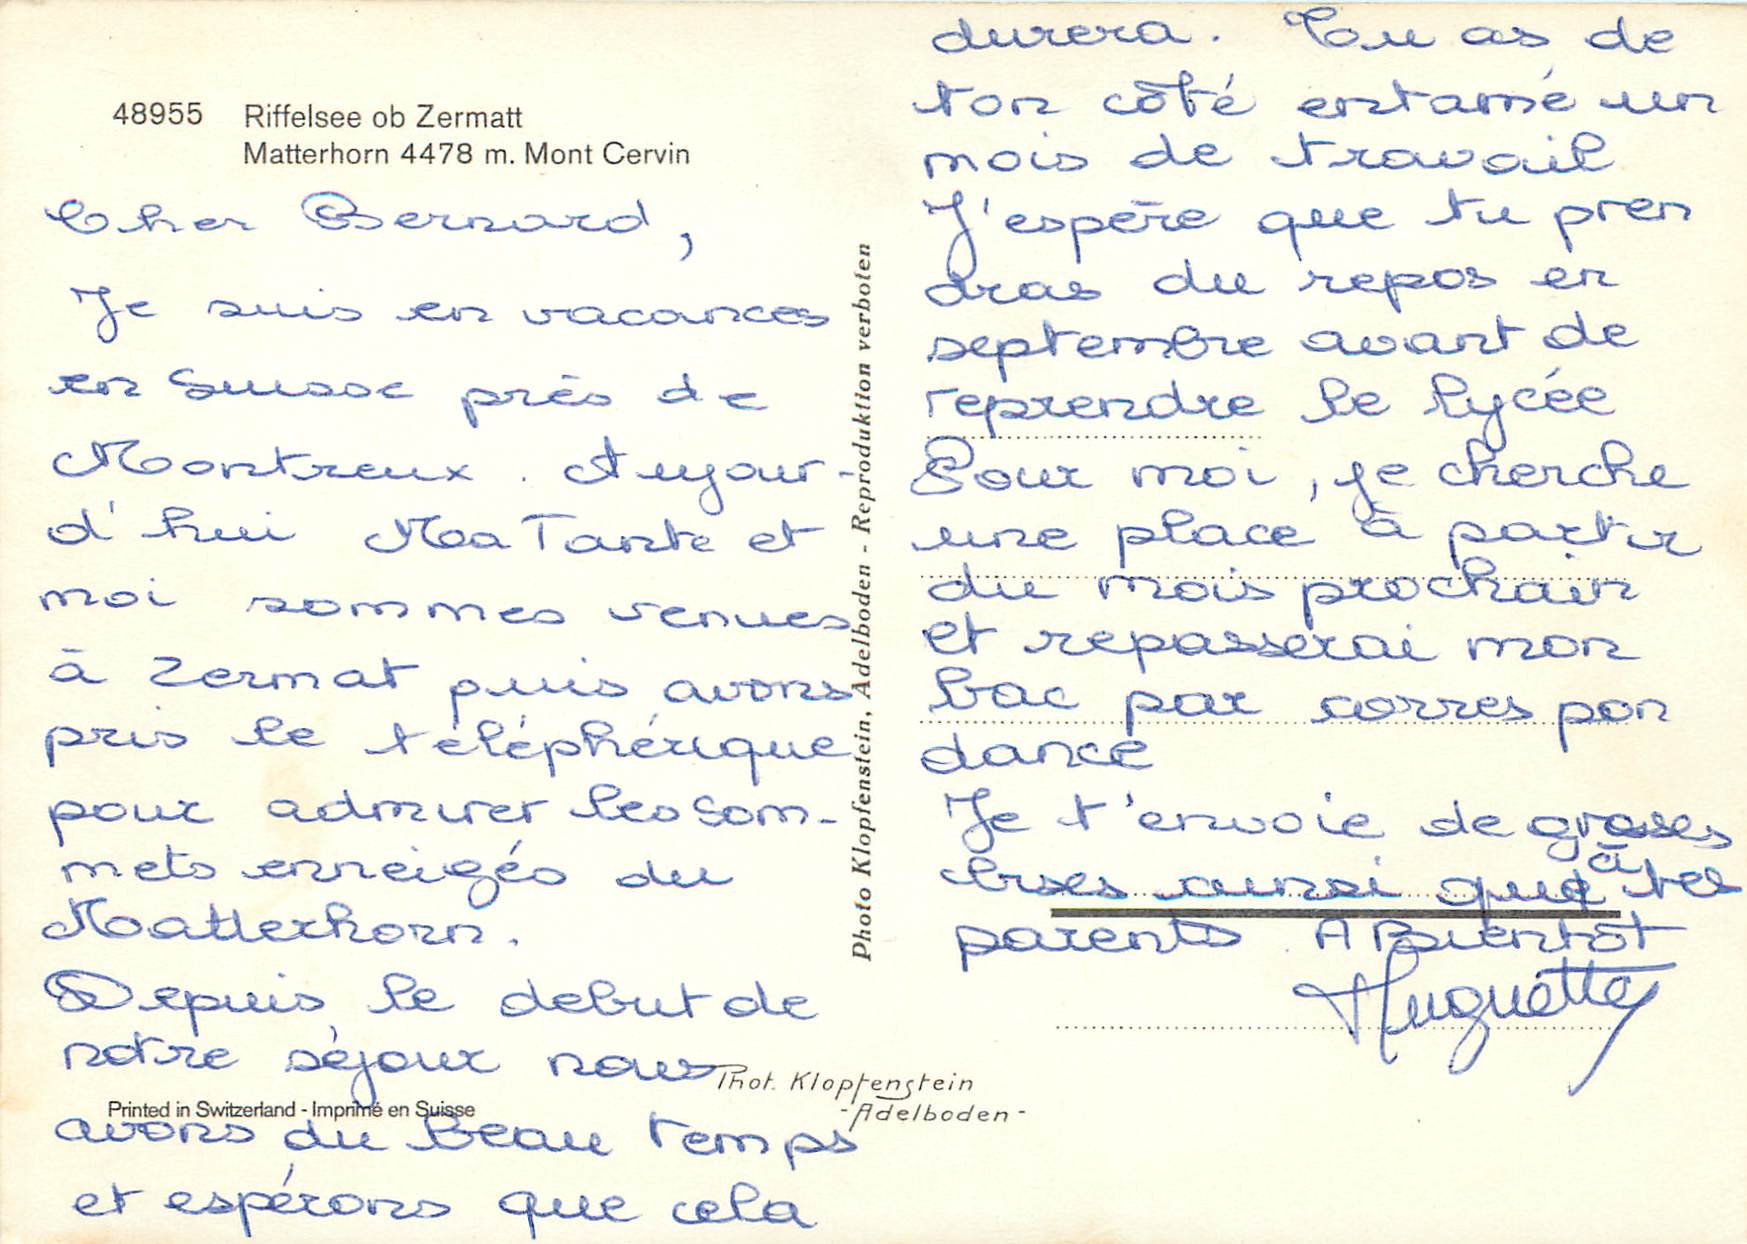 48955 Riffelsee ob Zermatt
Matterhorn 4478 m. Mont Cervin
Cher Bernard,
Je suis en vacances
en Suisse près de
Montreux. Aujour-
d'hui Ma Tante et
moi sommes venues
à Zermat puis avons
pris le téléphérique
pour admirer les som-
mets enneigés du
Matterhorn.
Depuis le debut de
notre séjour nous
avons du Beau temps
et espérons que cela
durera. Tu as de
ton côté entamé un
mois de travail
J'espère que tu pren
dras du repos en
septembre avant de
reprendre le lycée
Pour moi, je cherche
une place à partir
du mois prochain
et repasserai mon
bac par corres pon
dance
Je t'envoie de grosses
bises ainsi que à tes
parents. A Bientôt
Huguette
Photo Klopfenstein, Adelboden - Reproduktion verboten
Phot. Klopfenstein
- Adelboden -
Printed in Switzerland - Imprimé en Suisse